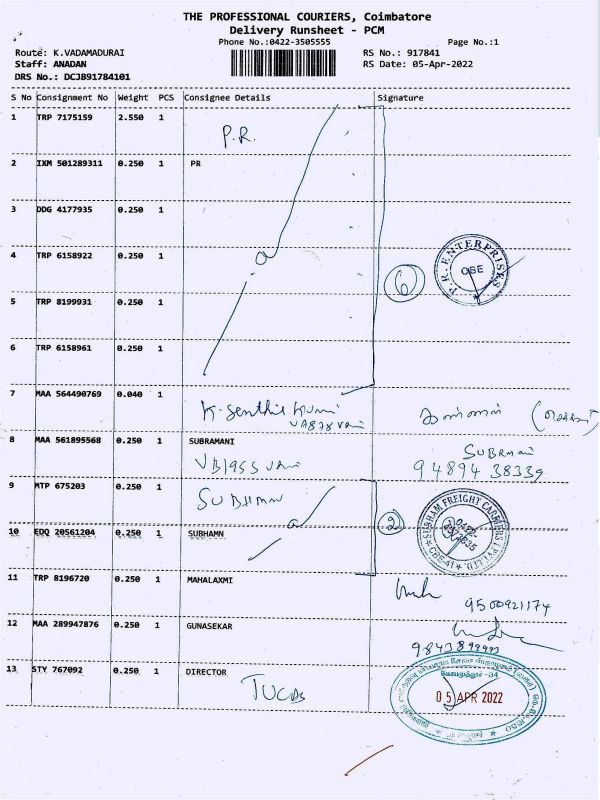 THE PROFESSIONAL COURIERS, Coimbatore
Delivery Runsheet - PCM
Phone No.:0422-3505555 Page No.:1
Route: K.VADAMADURAI RS No.: 917841
Staff: ANADAN RS Date: 05-Apr-2022
DRS No.: DCJB91784101
S No Consignment No Weight PCS Consignee Details Signature
1 TRP 7175159 2.550 1
P.R.
2 IXM 501289311 0.250 1 PR
3 DDG 4177935 0.250 1
4 TRP 6158922 0.250 1
P.R. ENTERPRISES
CBE
6
5 TRP 8199931 0.250 1
6 TRP 6158961 0.250 1
7 MAA 564490769 0.040 1
K. Senthil Kumar
8 MAA 561895568 0.250 1 SUBRAMANI
94894 38339
9 MTP 675203 0.250 1
SUBHMN
2
SUBHAM FREIGHT CARRIERS
10 EDQ 20561204 0.250 1 SUBHAMN
11 TRP 8196720 0.250 1 MAHALAXMI
9500921174
12 MAA 289947876 0.250 1 GUNASEKAR
13 STY 767092 0.250 1 DIRECTOR
TUCAS
05 APR 2022